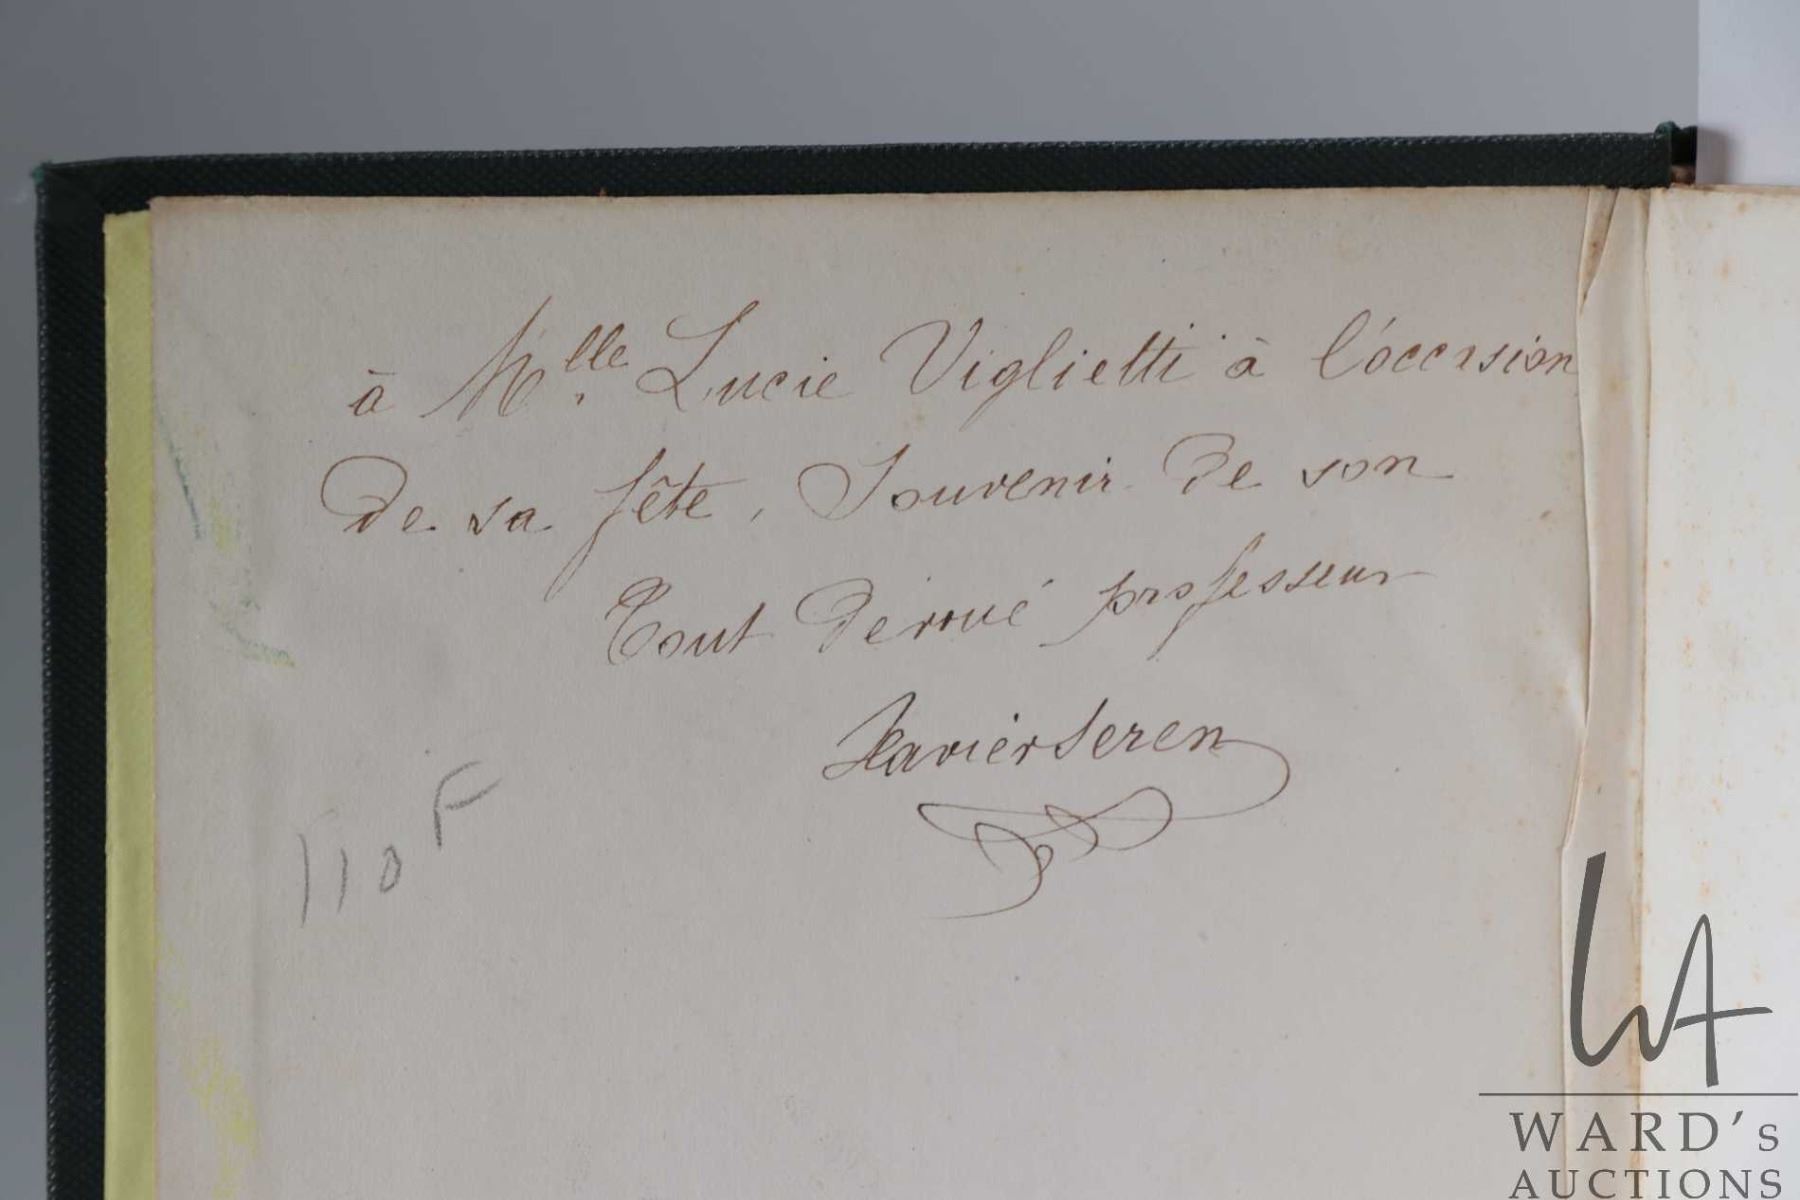 à Mlle. Lucie Viglietti à l'occasion
de sa fête, Souvenir de son
Tout dévoué professeur
Xavier Seren
110 F
WA
WARD's
AUCTIONS